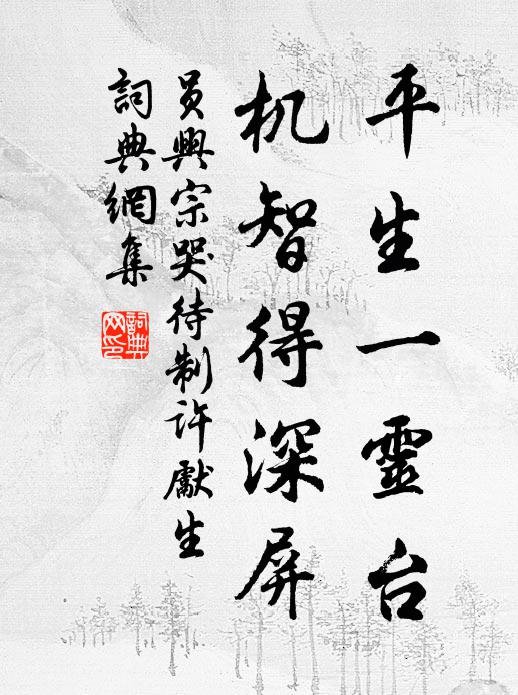 平生一靈台
机智得深屏
員興宗哭待制許獻生
詞典網集
詞典網印